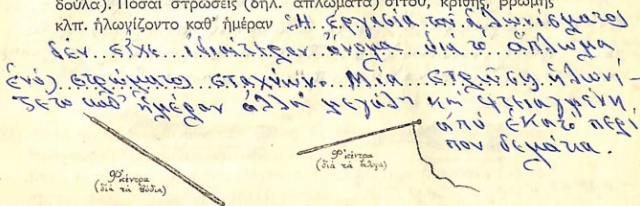 δοῦλα). Πόσαι στρώσεις (δηλ. ἁπλώματα) σίτου, κριθῆς, βρώμης
κλπ. ἡλωνίζοντο καθ' ἡμέραν Ἡ ἐργασία τοῦ ἁλωνίσματος
δὲν εἶχε ἰδιαίτερον ὄνομα διὰ τὸ ἅπλωμα
ἑνὸς στρώματος σταχυῶν. Μία στρῶσις ἡλωνί-
ζετο καθ' ἡμέραν ἀλλὰ μεγάλη καὶ φτιαγμένη
ἀπὸ ἑκατὸ περί
που δεμάτια.
κέντρα
(διὰ τὰ βόδια)
κέντρα
(διὰ τὰ ἄλογα)